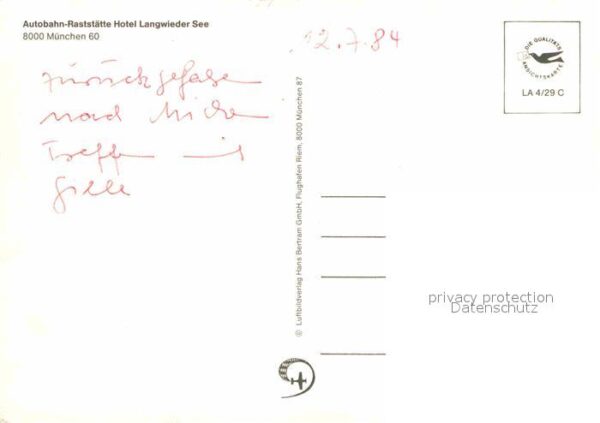 Autobahn-Raststätte Hotel Langwieder See
8000 München 60
12.7.84
zurückgefahre
nach
Treffe mit
DIE QUALITÄTS
ANSICHTSKARTE
LA 4/29 C
© Luftbildverlag Hans Bertram GmbH, Flughafen Riem, 8000 München 87
privacy protection
Datenschutz